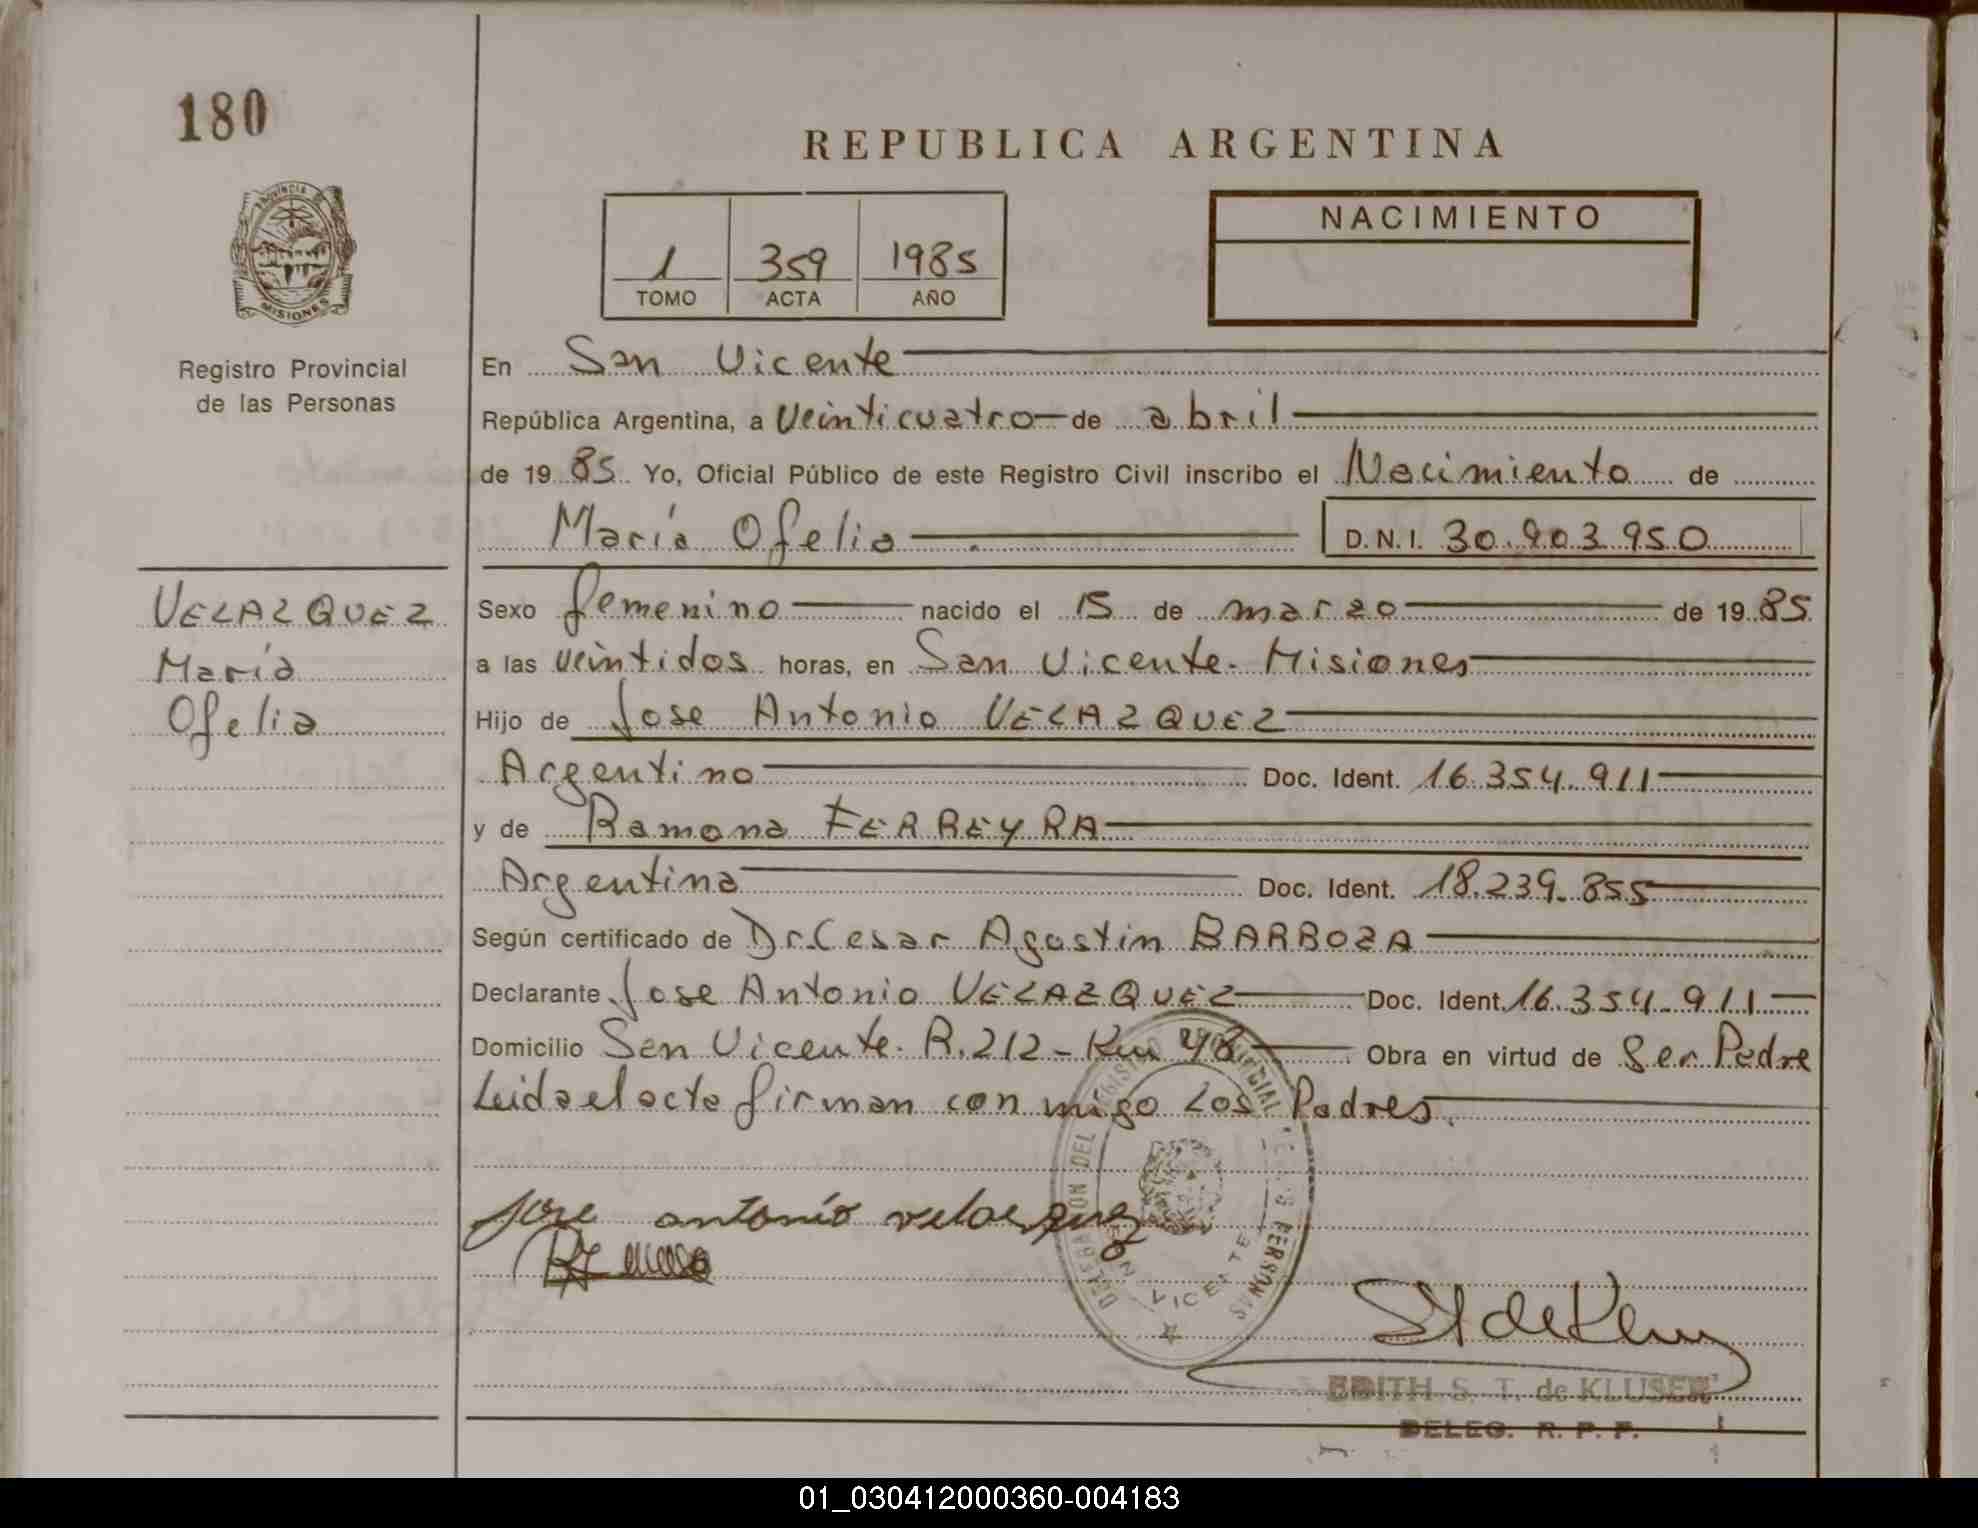 180
REPUBLICA ARGENTINA
PROVINCIA DE
MISIONES
Registro Provincial
de las Personas
1 359 1985
TOMO ACTA AÑO
NACIMIENTO
En San Vicente
República Argentina, a veinticuatro de abril
de 19 85 Yo, Oficial Público de este Registro Civil inscribo el Nacimiento de
María Ofelia D.N.I. 30.903.950
VELAZQUEZ
María
Ofelia
Sexo femenino nacido el 15 de marzo de 19 85
a las veintidos horas, en San Vicente. Misiones
Hijo de Jose Antonio VELAZQUEZ
Argentino Doc. Ident. 16.354.911
y de Ramona FERREYRA
Argentina Doc. Ident. 18.239.855
Según certificado de Dr. Cesar Agostin BARBOZA
Declarante Jose Antonio VELAZQUEZ Doc. Ident. 16.354.911
Domicilio San Vicente. R. 212 - Km 48 Obra en virtud de Ser Padre
Leida el acta firman con migo Los Padres.
jose antonío velaezquez
DELEGACION DEL REGISTRO PROVINCIAL DE LAS PERSONAS
VICENTE
EDITH S. T. de KLUSER
DELEG. R. P. P.
01_030412000360-004183